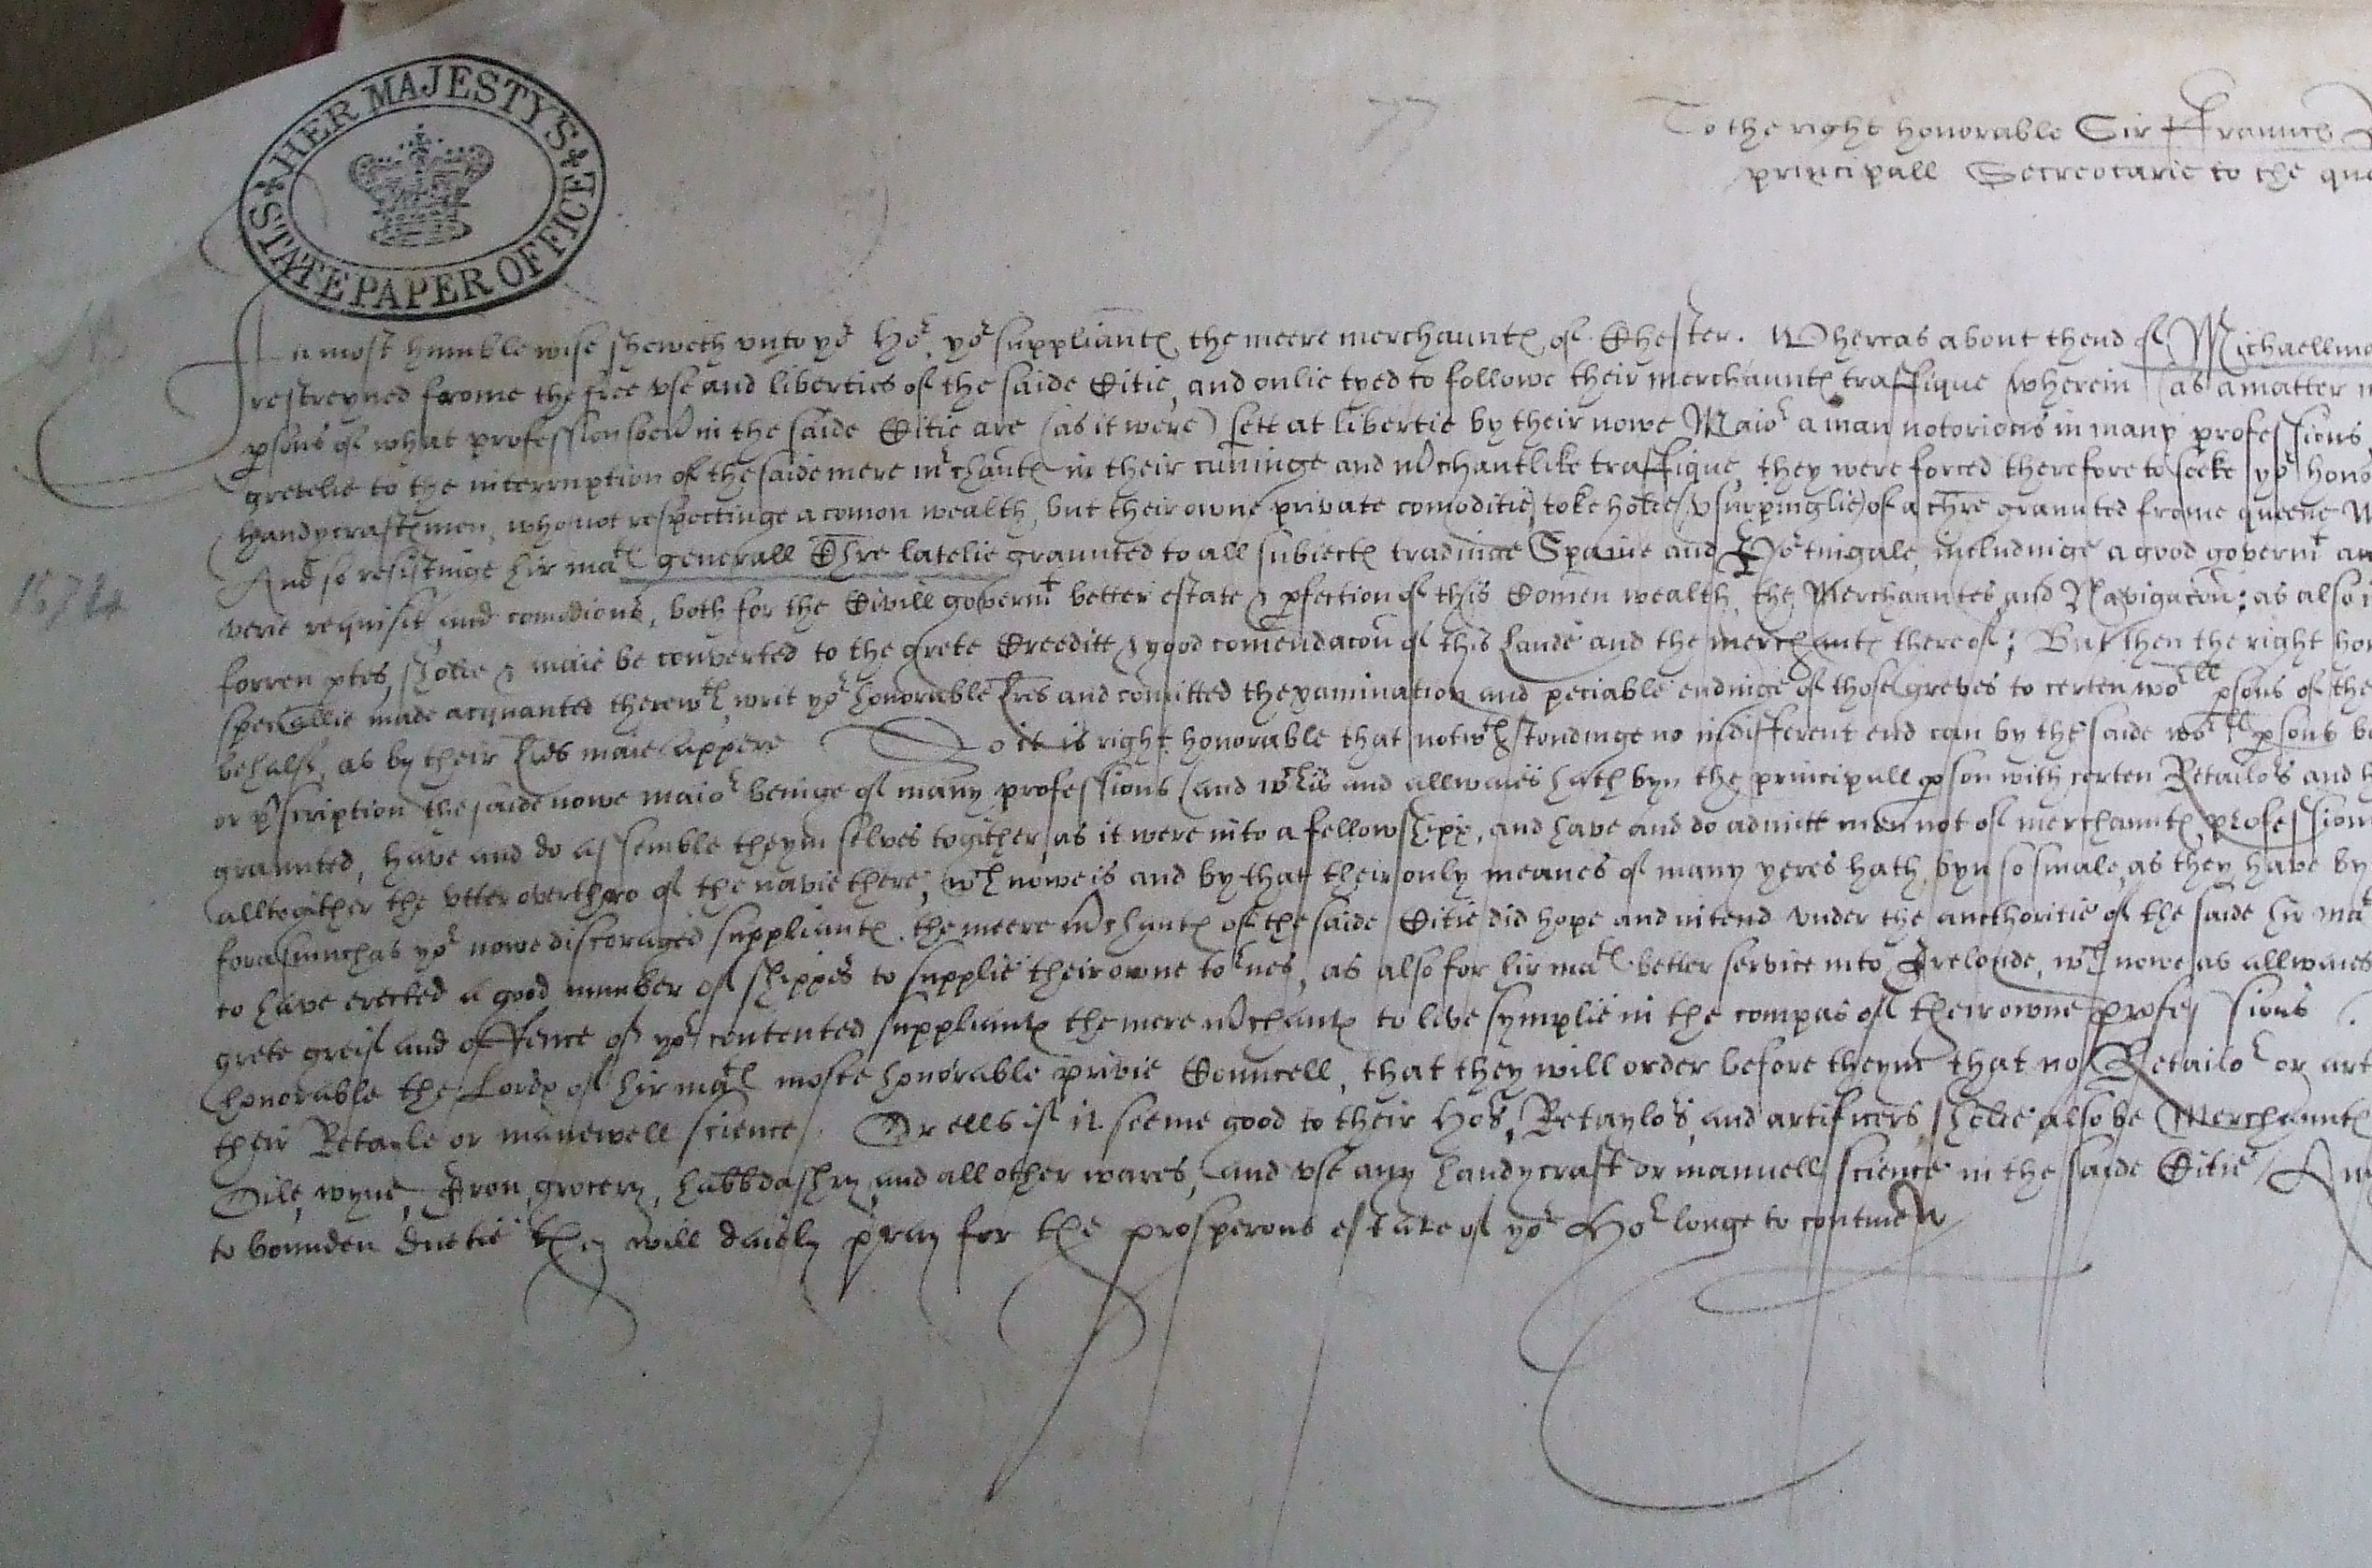 HER MAJESTY'S
STATE PAPER OFFICE
To the right honorable Sir Fraunces
principall Secreotarie to the que
In most humble wise sheweth unto yor Hor yor suppliantes the meere merchauntes of Chester. Whereas about thend of Michaellma
restreyned frome the free use and liberties of the saide Citie, and onlie tyed to followe their merchauntes traffique (wherein (as a matter
psons of what profession soeu in the saide Citie are (as it were) sett at libertie by their nowe Maior a man notorious in many professions
gretelie to the interruption of the saide mere mrchantes in their cuninge and mrchantlike traffique, they were forced therefore to seeke yor hono
handycraftesmen, who not respectinge a comon wealth, but their owne private comoditie, toke holde (usurpinglie) of a chre graunted frome queene
And so resistinge hir mates generall Chre latelie graunted to all subiectes tradinge Spaine and Portingale, includinge a good governmt an
verie requisit and comodious, both for the Civill governmt better estate & pfection of this Comen wealth, the Merchauntes and Navigacon: as also
forren ptes, sholde & maie be converted to the grete Creeditt & good comendacon of this Lande and the merchantes thereof; But then the right hon
speciallie made acquanted therewth, writ yor honorable lres and comitted thexamination and peciable endinge of those greves to certen worll psons of the
behalf, as by their lres maie appere So it is right honorable that notwthstondinge no indifferent end can by the saide worll psons be
or pscription the saide nowe maior beinge of many professions (and wch is and allwaies hath byn the principall pson with certen Retailors and h
graunted, have and do assemble theym selves togither, as it were into a fellowshipp, and have and do admitt men not of merchauntes profession
alltogither the utter overthro of the navie there, wch nowe is and by that their only meanes of many yeres hath byn so smale, as they have by
forasmuchas yor nowe discoraged suppliantes the meere mrchantes of the saide Citie did hope and intend under the aucthoritie of the saide hir mat
to have erected a good number of shippes to supplie their owne tornes, as also for hir mates better service into Irelonde, wch nowe as allwaies
grete greif and offence of yor contented suppliantes the mere mrchantes to live symplie in the compas of their owne professions.
honorable the Lordes of hir mates moste honorable privie Councell, that they will order before theym that no Retailor or art
their Retayle or manewell science. Or ells if it seeme good to their Hors, Retaylors, and artificers, sholde also be Merchauntes
Oile, wyne, Iron, grocery, habbdashry, and all other wares, and use any handycraft or manuell science in the saide Citie / An
to bounden duetie they will daiely pray for the prosperous estate of yor Hor longe to continew